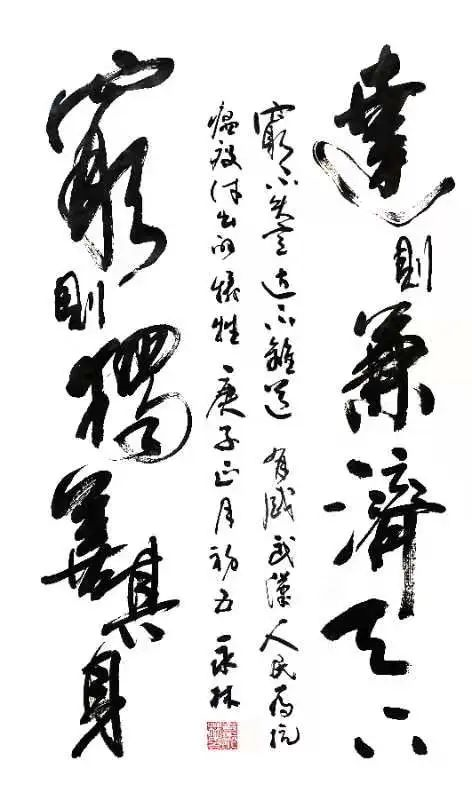 達則兼濟天下
窮不失義达不離道 有感武漢人民為抗
瘟疫作出的犧牲 庚子正月初五 永林
窮則獨善其身